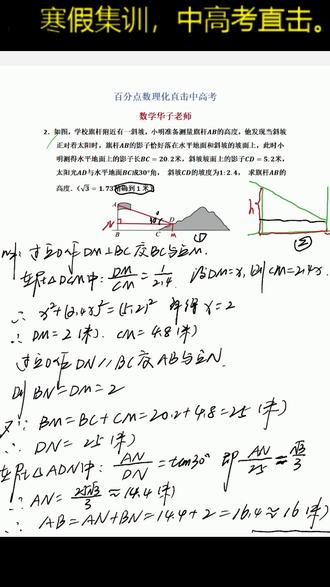 寒假集训，中高考直击。
百分点数理化直击中高考
数学华子老师
2．如图，学校旗杆附近有一斜坡，小明准备测量旗杆AB的高度，他发现当斜坡
正对着太阳时，旗杆AB的影子恰好落在水平地面和斜坡的坡面上，此时小
明测得水平地面上的影子长BC=20.2米，斜坡坡面上的影子CD=5.2米，
太阳光AD与水平地面BC成30°角，斜坡CD的坡度为1:2.4，求旗杆AB的
高度．（√3=1.73 精确到1米）
A
h
N
30°
D
B
C
M
①
②
解：过点D作DM⊥BC交BC与点M.
在Rt△DCM中：DM/CM=1/2.4. 设DM=x, 则CM=2.4x.
∴ x²+(2.4x)²=(5.2)² 解得x=2
∴ DM=2(米). CM=4.8(米)
过点D作DN∥BC交AB与点N.
则BN=DM=2
又∵ BM=BC+CM=20.2+4.8=25(米)
∴ DN=25(米)
在Rt△ADN中：AN/DN=tan30° 即 AN/25≈√3/3
∴ AN=25√3/3≈14.4(米)
∴ AB=AN+BN=14.4+2=16.4≈16(米)